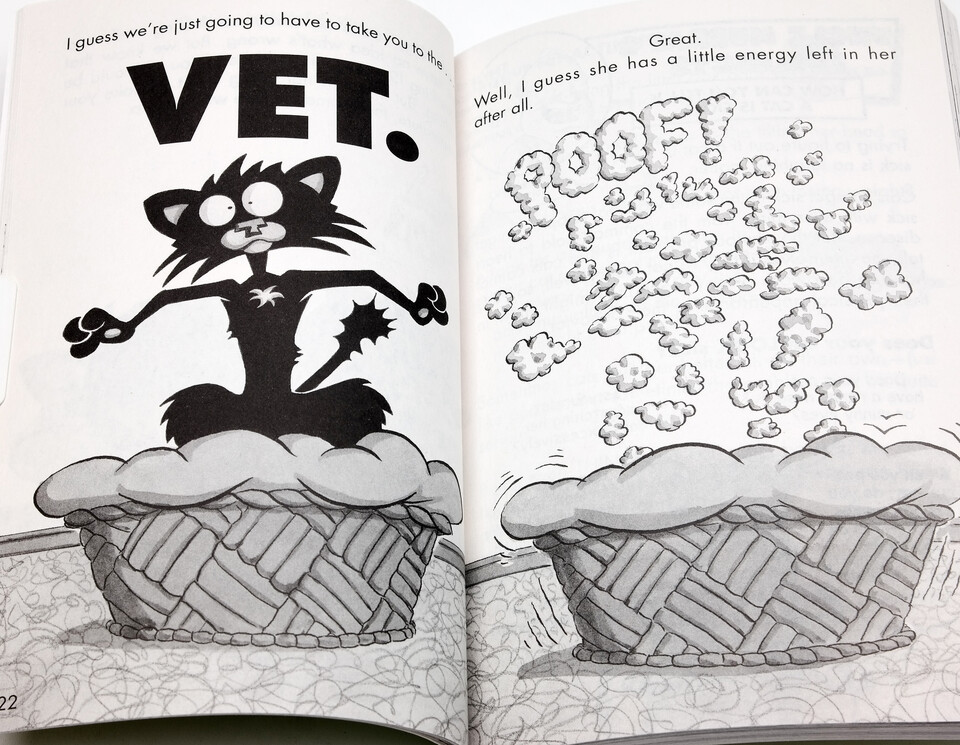 I guess we're just going to have to take you to the . .
VET.
22
Great.
Well, I guess she has a little energy left in her
after all.
POOF!